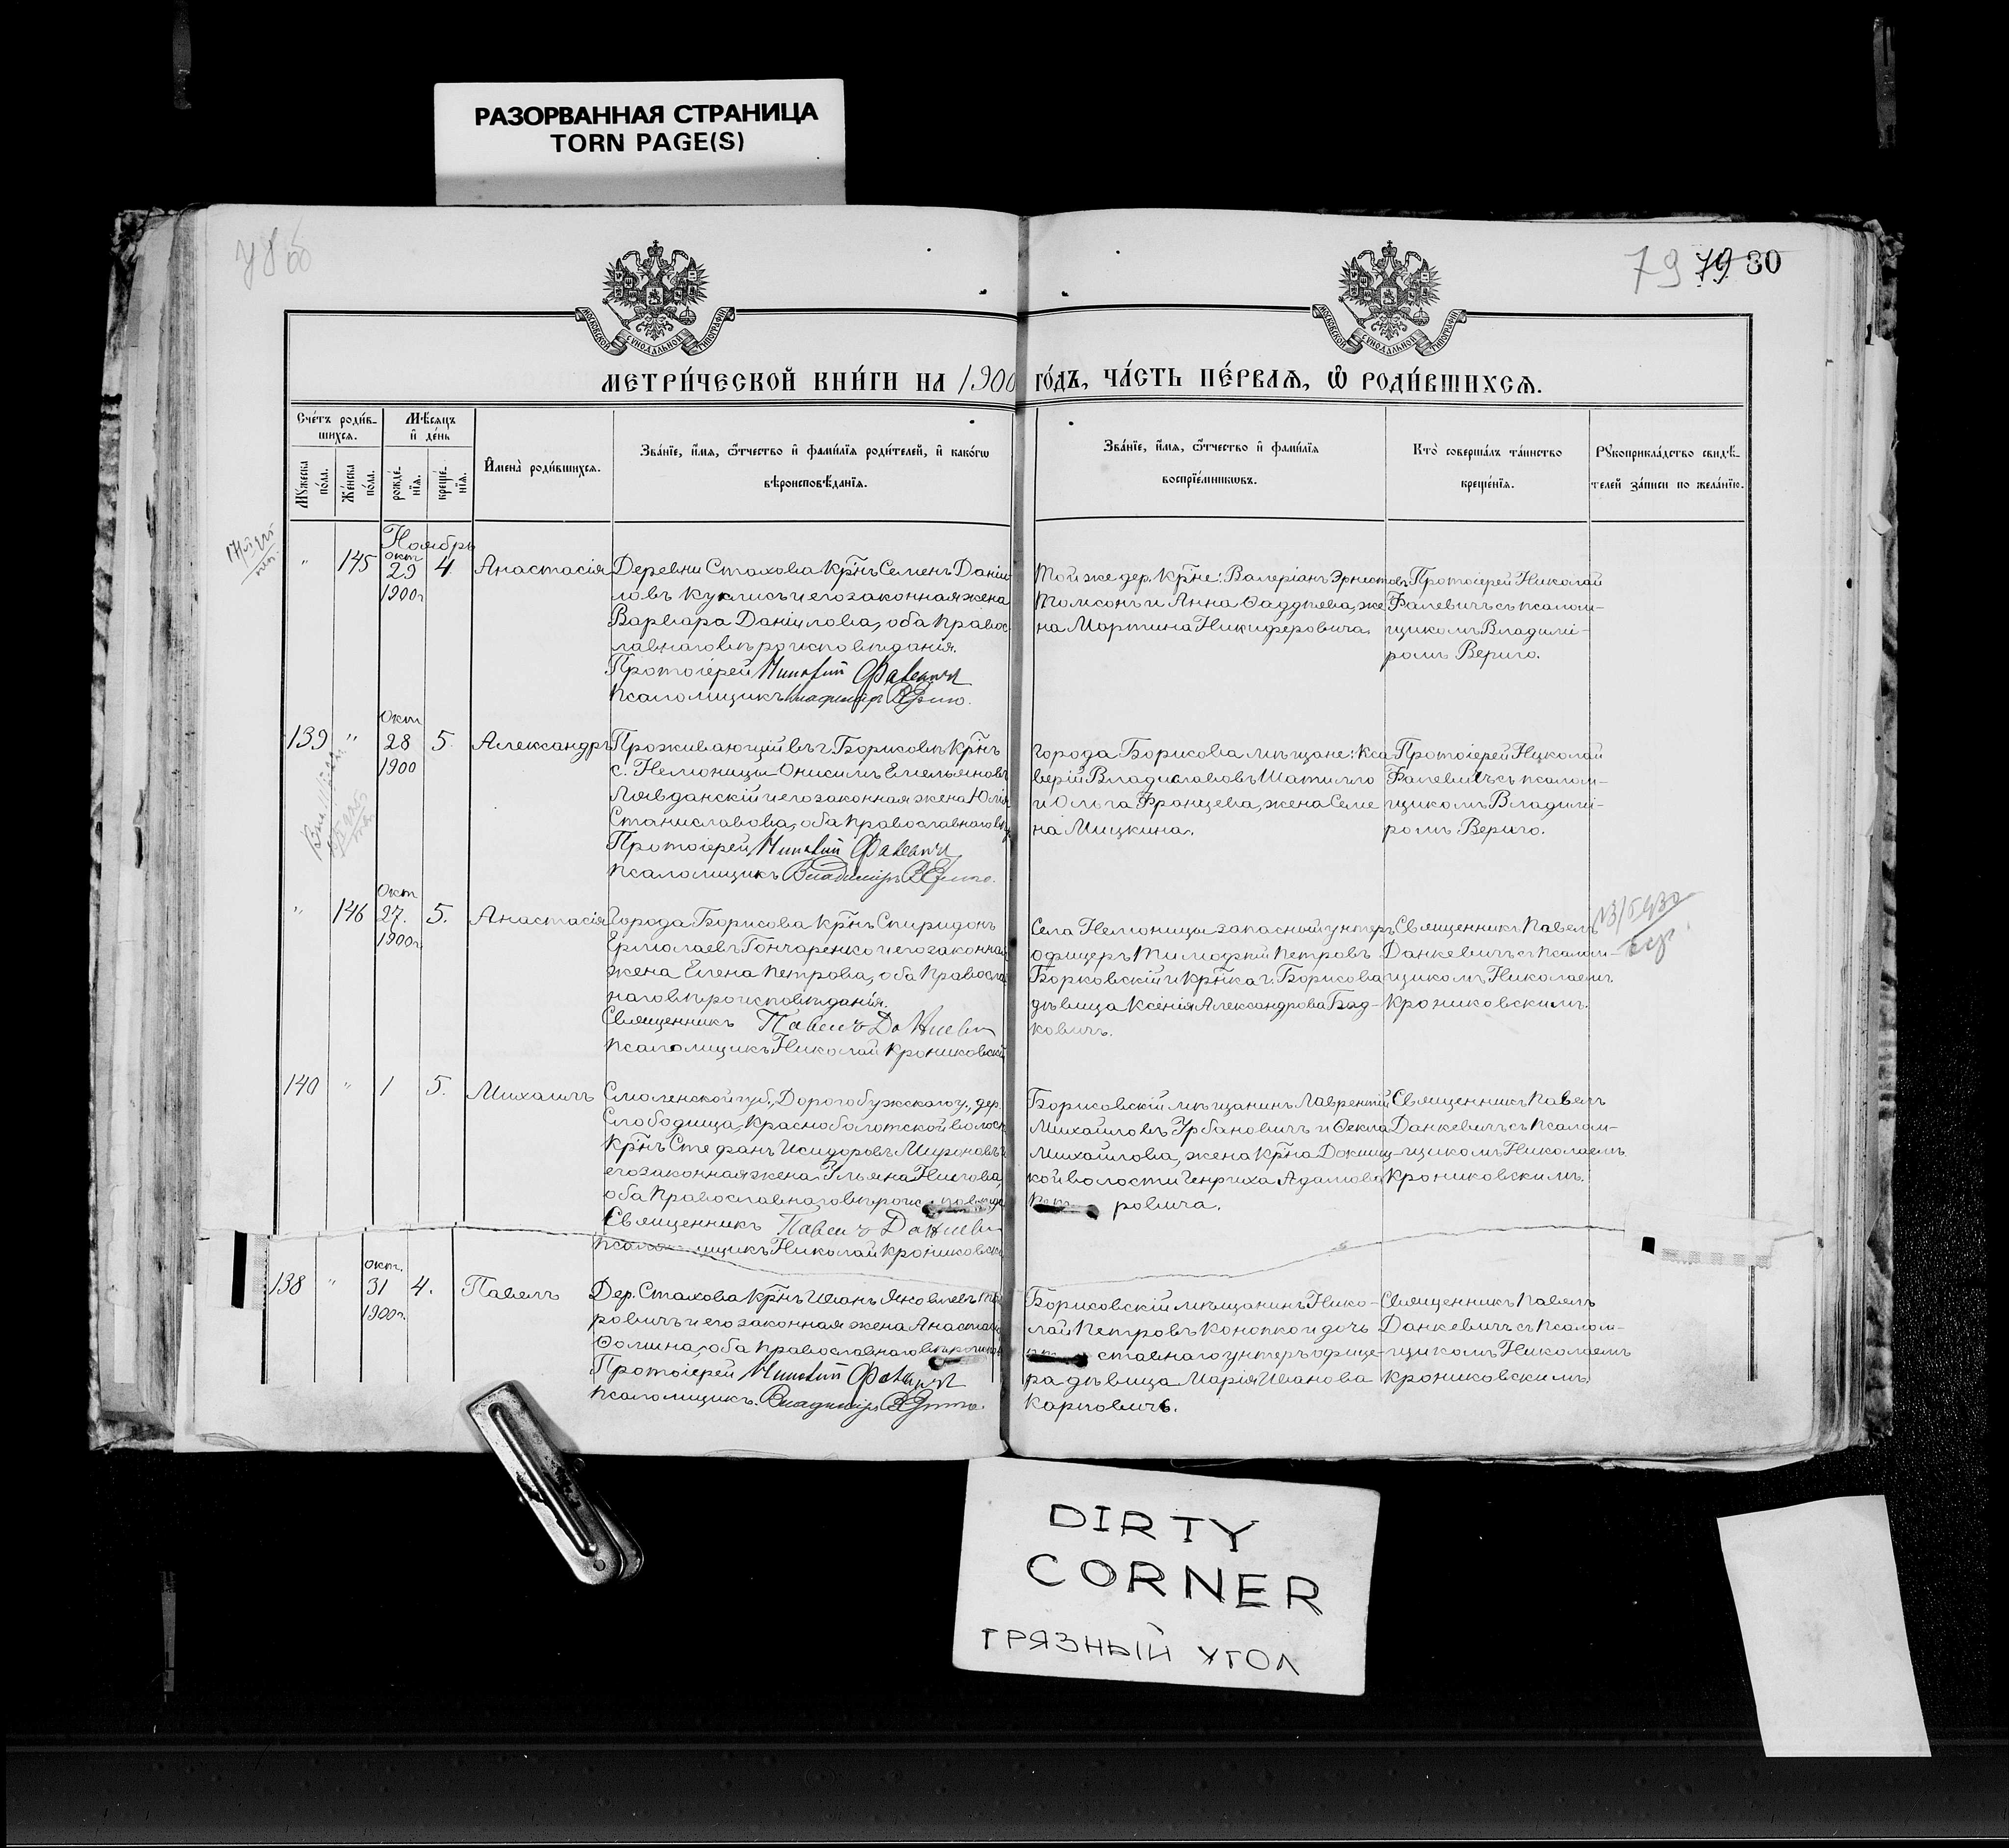 РАЗОРВАННАЯ СТРАНИЦА
TORN PAGE(S)
79 79 80
МОСКОВСКОЙ СѴНОДАЛЬНОЙ ТИПОГРАФІИ
МОСКОВСКОЙ СѴНОДАЛЬНОЙ ТИПОГРАФІИ
МЕТРИ́ЧЕСКОЙ КНИ́ГИ НА 1900 ГО́ДЪ, ЧА́СТЬ ПЕ́РВАЯ, Ѡ РОДИ́ВШИХСЯ.
Сче́тъ роди́в-
шихся.
Му́жеска по́ла.
Же́нска по́ла.
Мѣ́сяцъ
и де́нь
рожде́-
нія.
креще́-
нія.
Имена̀ роди́вшихся.
Зва́ніе, и́мя, ѻ́тчество и фами́лія роди́телей, и како́гѡ
вѣроисповѣ́данія.
Зва́ніе, и́мя, ѻ́тчество и фами́лія
воспріе́мникѡвъ.
Кто̀ соверша́лъ та́инство
креще́нія.
Рꙋкоприкла́дство свидѣ́-
телей за́писи по жела́нію.
Ноябрь
" 145 окт 29 1900г 4 Анастасія
Деревни Стахова Кр̃нъ Семенъ Даніи
ловъ Куклисъ и его законная жена
Варвара Даніилова, оба правос
лавнаго вѣроисповѣданія.
Протоіерей Николай Фалевичъ
Псаломщикъ Владиміръ Вериго.
Той же дер. Кр̃не: Валеріанъ Эрнестовъ
Томсонъ и Анна Фаддѣева, же
на Мартина Никиферовича.
Протоіерей Николай
Фалевичъ съ псалом-
щикомъ Владимі-
ромъ Вериго.
139 " Окт 28 1900 5. Александръ
Проживающій въ г. Борисовѣ Кр̃нъ
с. Немоницы Онисимъ Емельяновъ
Лявданскій и его законная жена Юлія
Станиславова, оба православнаго вѣр
Протоіерей Николай Фалевичъ
Псаломщикъ Владиміръ Вериго.
города Борисова мѣщане: Кса
верій Владиславовъ Шатилло
и Ольга Францева, жена Семе
на Мицкина.
Протоіерей Николай
Фалевичъ съ псалом-
щикомъ Владимі-
ромъ Вериго.
" 146 Окт 27. 1900г. 5. Анастасія
Города Борисова Кр̃нъ Спиридонъ
Ермолаевъ Гончаренко и его законная
жена Елена Петрова, оба правосла
наго вѣроисповѣданія.
Священникъ Павелъ Данкевичъ
Псаломщикъ Николай Крониковскій
Села Немоницы запасной унтеръ
офицеръ Тимофей Петровъ
Борковскій и Кр̃нка г. Борисова
дѣвица Ксенія Александрова Бод-
ковичъ.
Священникъ Павелъ
Данкевичъ съ псалом-
щикомъ Николаемъ
Крониковскимъ.
140 " 1 5. Михаилъ
Смоленской губ., Дорогобужскаго у., дер.
Слободища, Красноболотской волости
Кр̃нъ Стефанъ Исидоровъ Мироновъ и
его законная жена Ульяна Ниловa,
оба православнаго вѣроисповѣда
Священникъ Павелъ Данкевичъ
Псаломщикъ Николай Крониковскій
Борисовскій мѣщанинъ Лаврентій
Михайловъ Урбановичъ и Ѳекла
Михайлова, жена Кр̃на Докшиц-
кой волости Генриха Адамова
ровича.
Священникъ Павелъ
Данкевичъ съ псалом-
щикомъ Николаемъ
Крониковскимъ.
138 " окт. 31 1900г. 4. Павелъ
Дер. Стахова Кр̃нъ Иванъ Яковлевъ
ровичъ и его законная жена Анастасія
Ѳомина, оба православнаго вѣроиспов
Протоіерей Николай Фалевичъ
Псаломщикъ Владиміръ Вериго.
Борисовскій мѣщанинъ Нико-
лай Петровъ Конопко и дочь
ставнаго унтеръ офице-
ра дѣвица Марія Иванова
Карповичъ.
Священникъ Павелъ
Данкевичъ съ псалом-
щикомъ Николаемъ
Крониковскимъ.
DIRTY
CORNER
ГРЯЗНЫЙ УГОЛ